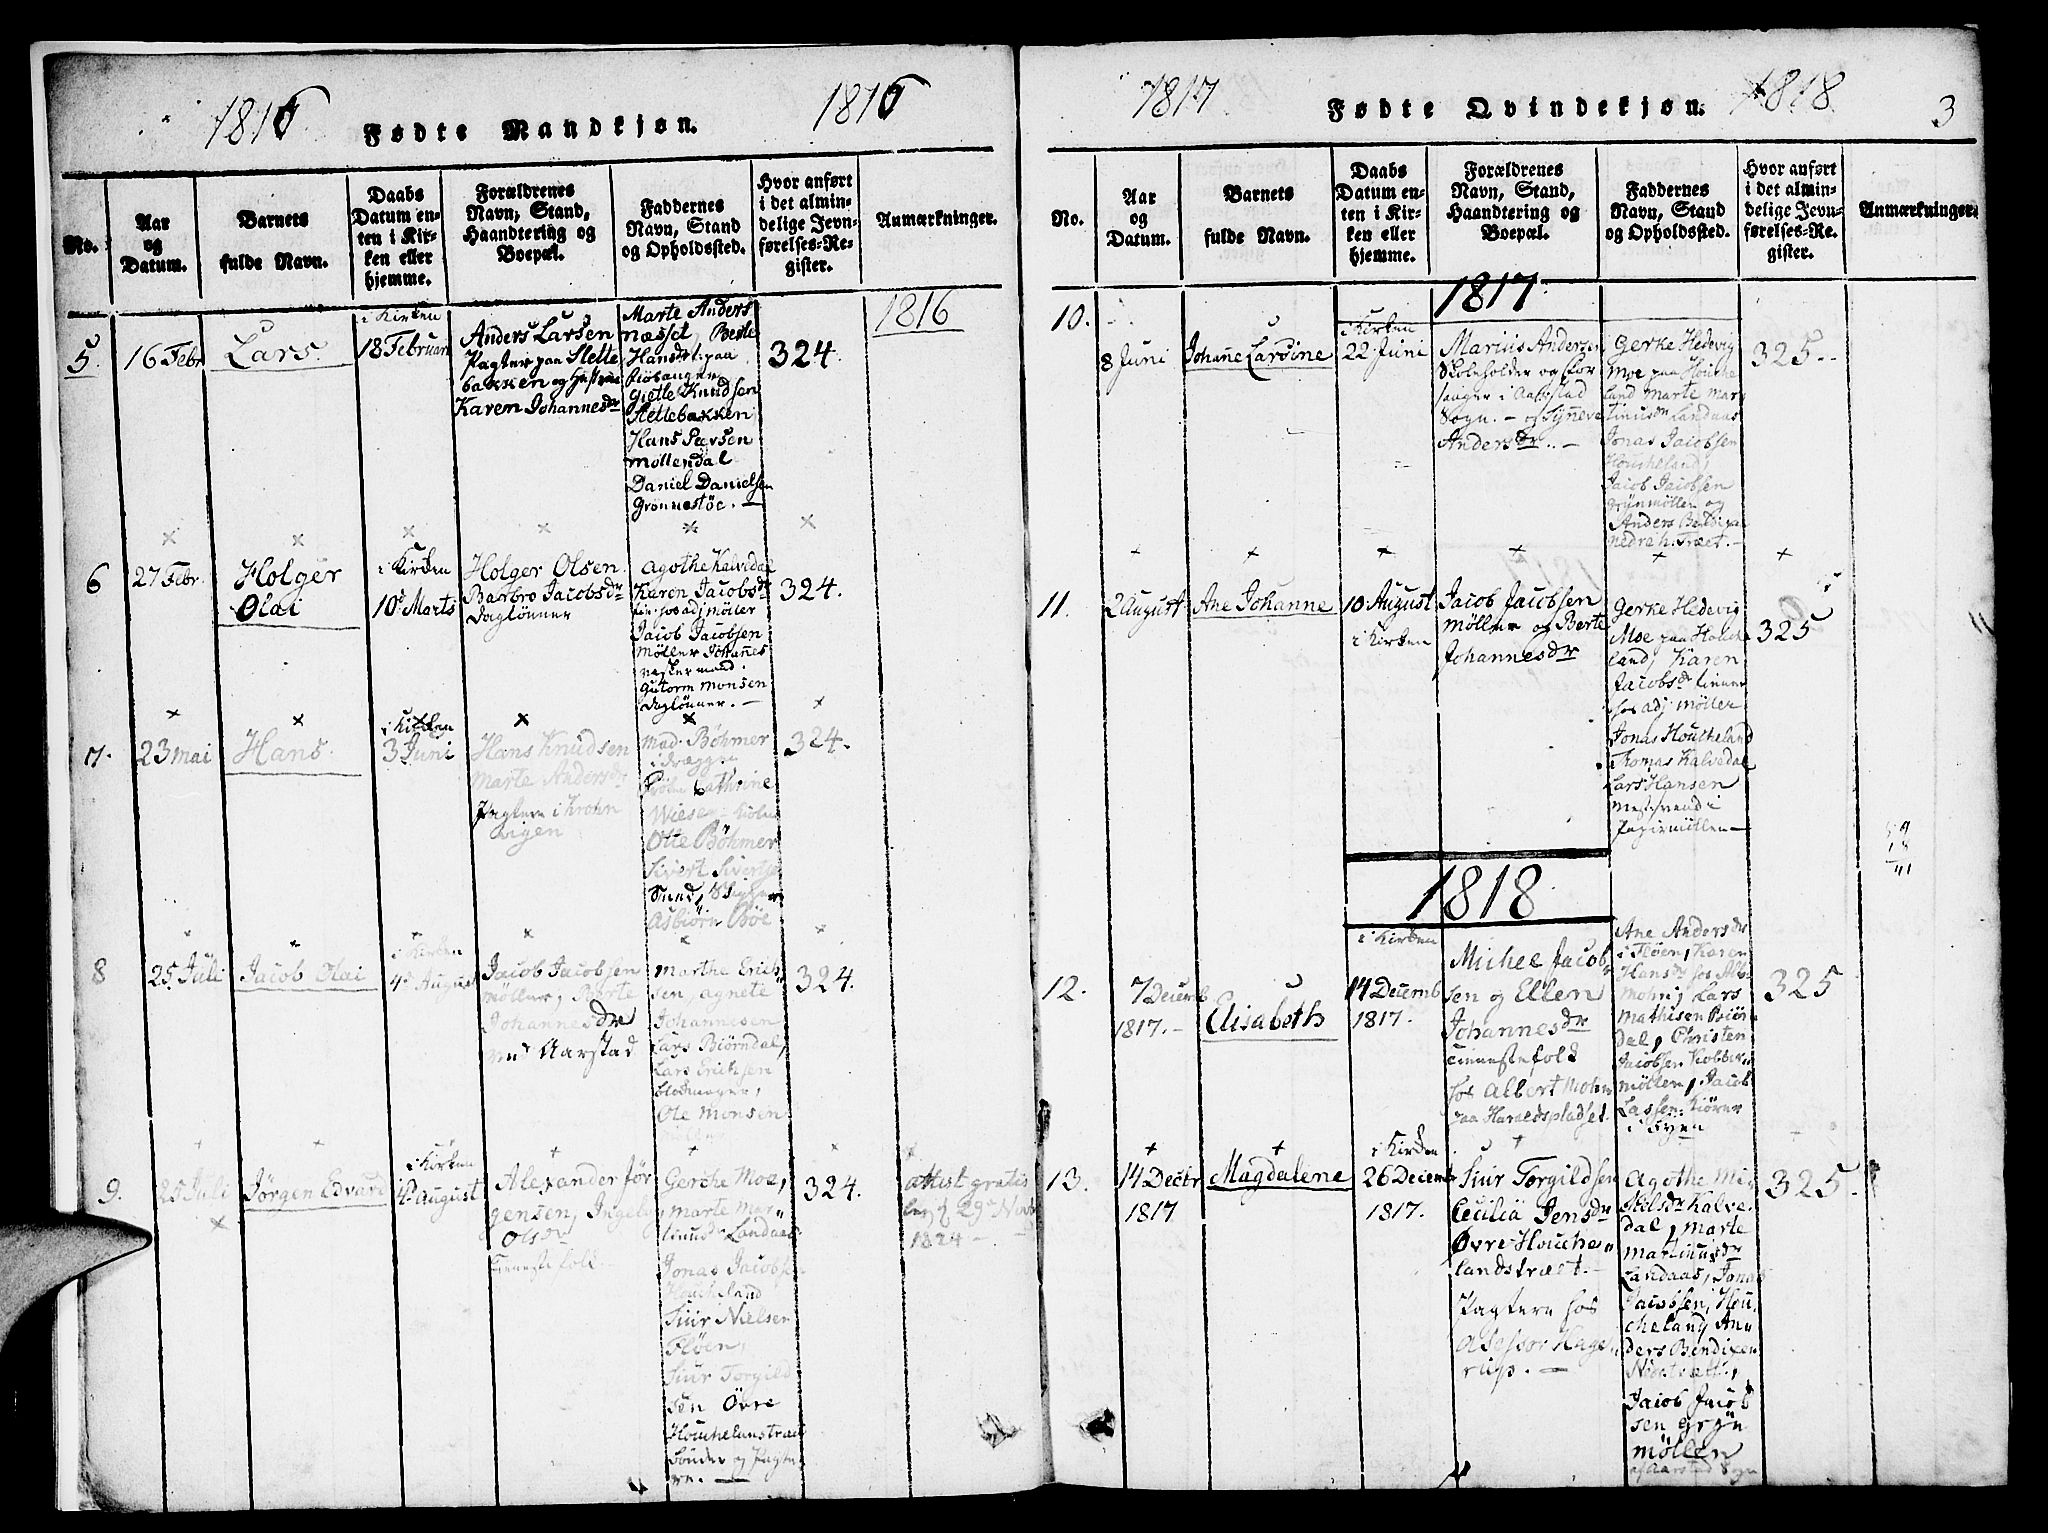 1816
Fødte Mandkjøn.
1816
No.
Aar
og
Datum.
Barnets
fulde Navn.
Daabs
Datum en-
ten i Kir-
ken eller
hjemme.
Forældrenes
Navn, Stand,
Haandtering og
Boepæl.
Faddernes
Navn, Stand
og Opholdssted.
Hvor anført
i det almin-
delige Jevn-
førelses-Re-
gister.
Anmærkninger.
1816
5.
16 Febr
Lars.
i Kirken
18 Februar
Anders Larsen
Pagter paa Slette
bakken og Hustrue
Karen Johannesdr
Marte Anders
næsset, Berte
Hansdr paa
Fiøsanger
Gjetle Knudsen
Slettebakken
Hans Peersen
Møllendal
Daniel Danielsen
Grønnestøe. —
324
6
27 Febr.
Holger
Olai
i Kirken
10d Marts
Holger Olsen
Barbro Jacobsdr
Dagløнner
Agothe Kalvedal
Karen Jacobsdr
hos adj Møller
Jacob Jacobsen
Møller Johannes
Guttorm Monsen
Dagløнner. —
324.
7.
23 Mai
Hans.
i Kirken
3 Juni
Hans Knudsen
Marte Andersdr
Pagtere i Krohn
vigen
Mad. Böhmer
i Dræggen
Cathrine
Wiese
Otte Böhmer
Sivert Sivertsen
Sund,
Asbiørn Bøe
324.
8
25 Juli
Jacob Olai
i Kirken
4d August
Jacob Jacobsen
Møller, Berte
Johannesdr
ved Aarstad
Marthe Erich
sen, Agnete
Johannesen
Lars Biørndal,
Lars Erichsen
Ole Monsen
Møller
324.
9.
25 Juli
Jørgen Edvard
i Kirken
4d August
Alexander Jør
gensen, Ingeb
Olsdr
Tienestefolk
Gerche Moe,
Marte Mar
tinusdr Landaas
Jonas Jacobsen
Houcheland
Siur Nielsen
Fløen,
Siur Torgild
sen Øvre
Houchelanstræt
Bønder og Pagte
re. —
324.
attest gratis
29d Novb
1824 —
1817
Fødte Qvindekjøn.
1818
3
No.
Aar
og
Datum.
Barnets
fulde Navn.
Daabs
Datum en-
ten i Kir-
ken eller
hjemme.
Forældrenes
Navn, Stand,
Haandtering og
Boepæl.
Faddernes
Navn, Stand
og Opholdssted.
Hvor anført
i det almin-
delige Jevn-
førelses-Re-
gister.
Anmærkninger.
1817
10.
8 Juni
Johanne Lardine
i Kirken
22 Juni
Marius Andersen
Skoleholder og For
sanger i Aarstad
Sogn. — og Synneve
Andersdr. —
Gerke Hedevig
Moe paa Houche
land Marte Mar
tinusdr Landaas
Jonas Jacobsen
Houcheland,
Jacob Jacobsen
Grynmøllen og
Anders Bendixen
Nedre h. Træet. —
325.
11.
2 August
Ane Johanne
10 August
i Kirken
Jacob Jacobsen
Møller og Berte
Johannesdr
Gerke Hedevig
Moe paa Houche
land, Karen
Jacobsdr tiener
hos adj Møller
Jonas Houcheland
Thomas Kalvedal
Lars Hansen
Mestersvend i
Papirmøllen —
325
1818
12.
7 Decemb
1817. —
Elisabeth
i Kirken
14 Decemb
1817.
Michel Jacob
sen og Ellen
Johannesdr
tienestefolk
hos Albert Mohn
paa Haraldspladset.
Ane Andersdr
i Fløen, Karen
Hansdr hos Alb.
Mohn, Lars
Mathisen Biørn
dal, Christen
Jacobsen Kobber
møllen, Jacob
Lassen. Kiører
i Byen
325
13.
14 Decbr
1817
Magdalene
i Kirken
26 Decemb
1817.
Siur Torgildsen
Cecilia Jensdr
Øvre Houche
landstræet. —
Pagtere hos
Asessor Hage
rup. —
Agothe Mi
kelsdr Kalve
dal, Marte
Martinusdr
Landaas, Jonas
Jacobsen, Hou
cheland, An
ders Bendixen
Nedstræt,
Jacob Jacob
sen Gryn
møllen
af Aarstad Sogn
325.